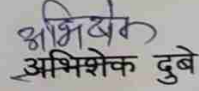 अभिषेक
अभिशेक दुबे